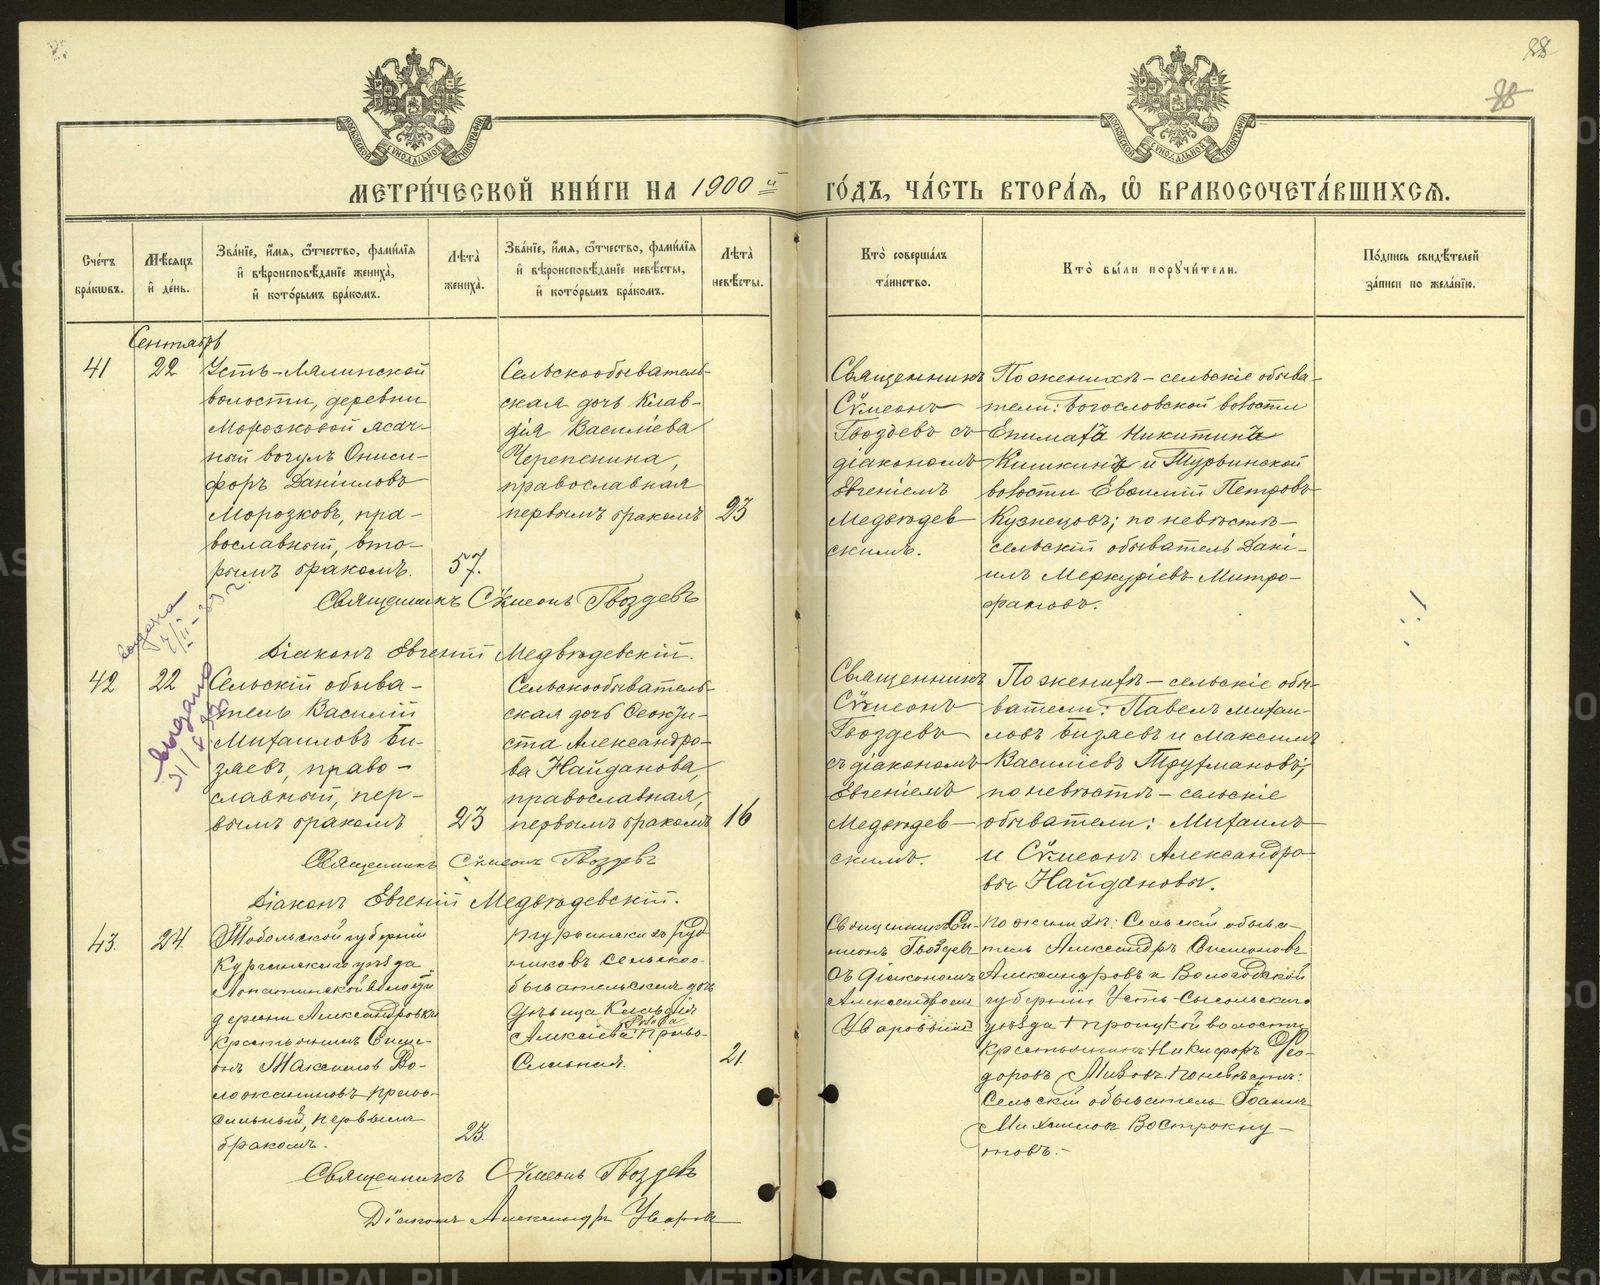 88
МЕТРИ́ЧЕСКОЙ КНИ́ГИ НА 1900й ГО́ДЪ, ЧА́СТЬ ВТОРА́Ѧ, Ѽ БРАКОСОЧЕТА́ВШИХСѦ.
Сче́тъ бра́кѡвъ.
Мѣ́сѧцъ и҆ де́нь.
Зва́нїе, и҆́мѧ, ѻ҆́тчество, фами́лїѧ
и҆ вѣроисповѣ́данїе жениха̀,
и҆ кото́рымъ бра́комъ.
Лѣта̀ жениха̀.
Зва́нїе, и҆́мѧ, ѻ҆́тчество, фами́лїѧ
и҆ вѣроисповѣ́данїе невѣ́сты,
и҆ кото́рымъ бра́комъ.
Лѣта̀ невѣ́сты.
Кто̀ соверша́лъ та́инство.
Кто̀ бы́ли порꙋчи́тели.
По́дпись свидѣ́телей за́писи по жела́нїю.
Сентябрь
41
22
Усть-Лялинской
волости, деревни
Морозковой ясач-
ный вогулъ Ониси-
форъ Даніиловъ
Морозковъ, пра-
вославный, вто-
рымъ бракомъ.
57.
Сельскообыватель-
ская дочь Клав-
дія Василіева
Черепенина,
православная
первымъ бракомъ
23
Священникъ
Сѵмеонъ
Гвоздевъ съ
діакономъ
Евгеніемъ
Медвѣдев-
скимъ.
По женихѣ - сельскіе обыва-
тели: Богословской волости
Епимахъ Никитинъ
Кишкинъ и Турьинской
волости Евѳимій Петровъ
Кузнецовъ; по невѣстѣ -
сельскій обыватель Дані-
илъ Меркуріевъ Митро-
фановъ.
Священникъ Сѵмеонъ Гвоздевъ
Діаконъ Евгеній Медвѣдевскій.
42
22
выдано
Сельскій обыва-
тель Василій
Михаиловъ Би-
заевъ, право-
славный, пер-
вымъ бракомъ
23
Сельскообыватель-
ская дочь Ѳеокти-
ста Александро-
ва Найданова,
православная,
первымъ бракомъ
16
Священникъ
Сѵмеонъ
Гвоздевъ
съ діакономъ
Евгеніемъ
Медвѣдев-
скимъ.
По женихѣ - сельскіе обы-
ватели: Павелъ Михаи-
ловъ Бизаевъ и Максимъ
Василіевъ Траутмановъ;
по невѣстѣ - сельскіе
обыватели: Михаилъ
и Сѵмеонъ Александро-
вы Найдановы.
Священникъ Сѵмеонъ Гвоздевъ
Діаконъ Евгеній Медвѣдевскій.
43.
24
Тобольской губерніи
Курганскаго уѣзда
Лопатинской волости
деревни Александровки
крестьянинъ Симе-
онъ Максимовъ Во-
ложаниновъ право-
славный, первымъ
бракомъ.
23.
Турьинскихъ руд-
никовъ сельскоо-
бывательская дочь
дѣвица Клавдія
Алексѣева право-
славная.
21
Священникъ Си-
меонъ Гвоздевъ
съ діакономъ
Александромъ
Уваровымъ
По женихѣ: Сельскій обыва-
тель Александръ Симеоновъ
Александровъ и Вологодской
губерніи Усть-Сысольскаго
уѣзда Троицкой волости
крестьянинъ Никифоръ Ѳео-
доровъ по невѣстѣ:
Сельскій обыватель Іоаннъ
Михаиловъ Вострокну-
товъ.-
Священникъ Сѵмеонъ Гвоздевъ
Діаконъ Александръ Уваровъ
METRIKI.GASO-URAL.RU